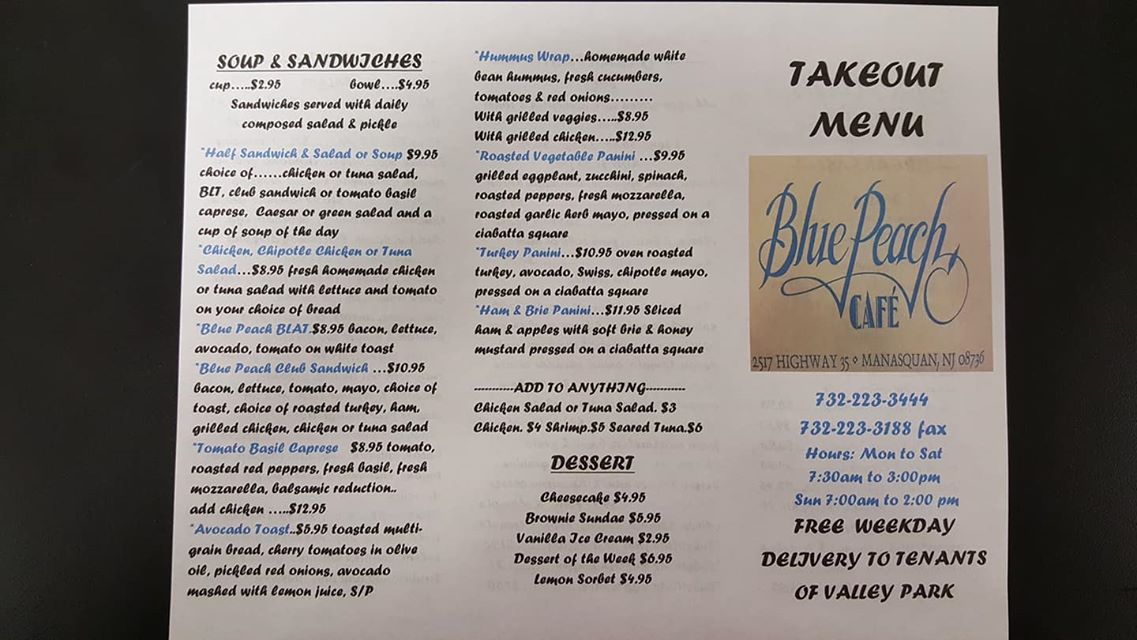 SOUP & SANDWICHES
cup.....$2.95 bowl....$4.95
Sandwiches served with daily
composed salad & pickle
*Half Sandwich & Salad or Soup $9.95
choice of......chicken or tuna salad,
BLT, club sandwich or tomato basil
caprese, Caesar or green salad and a
cup of soup of the day
*Chicken, Chipotle Chicken or Tuna
Salad...$8.95 fresh homemade chicken
or tuna salad with lettuce and tomato
on your choice of bread
*Blue Peach BLAT.$8.95 bacon, lettuce,
avocado, tomato on white toast
*Blue Peach Club Sandwich ...$10.95
bacon, lettuce, tomato, mayo, choice of
toast, choice of roasted turkey, ham,
grilled chicken, chicken or tuna salad
*Tomato Basil Caprese $8.95 tomato,
roasted red peppers, fresh basil, fresh
mozzarella, balsamic reduction..
add chicken .....$12.95
*Avocado Toast..$5.95 toasted multi-
grain bread, cherry tomatoes in olive
oil, pickled red onions, avocado
mashed with lemon juice, S/P
*Hummus Wrap...homemade white
bean hummus, fresh cucumbers,
tomatoes & red onions.........
With grilled veggies.....$8.95
With grilled chicken.....$12.95
*Roasted Vegetable Panini ...$9.95
grilled eggplant, zucchini, spinach,
roasted peppers, fresh mozzarella,
roasted garlic herb mayo, pressed on a
ciabatta square
*Turkey Panini...$10.95 oven roasted
turkey, avocado, Swiss, chipotle mayo,
pressed on a ciabatta square
*Ham & Brie Panini...$11.95 Sliced
ham & apples with soft brie & honey
mustard pressed on a ciabatta square
-----------ADD TO ANYTHING-----------
Chicken Salad or Tuna Salad. $3
Chicken. $4 Shrimp.$5 Seared Tuna.$6
DESSERT
Cheesecake $4.95
Brownie Sundae $5.95
Vanilla Ice Cream $2.95
Dessert of the Week $6.95
Lemon Sorbet $4.95
TAKEOUT
MENU
Blue Peach
CAFÉ
2517 HIGHWAY 35 ◦ MANASQUAN, NJ 08736
732-223-3444
732-223-3188 fax
Hours: Mon to Sat
7:30am to 3:00pm
Sun 7:00am to 2:00 pm
FREE WEEKDAY
DELIVERY TO TENANTS
OF VALLEY PARK